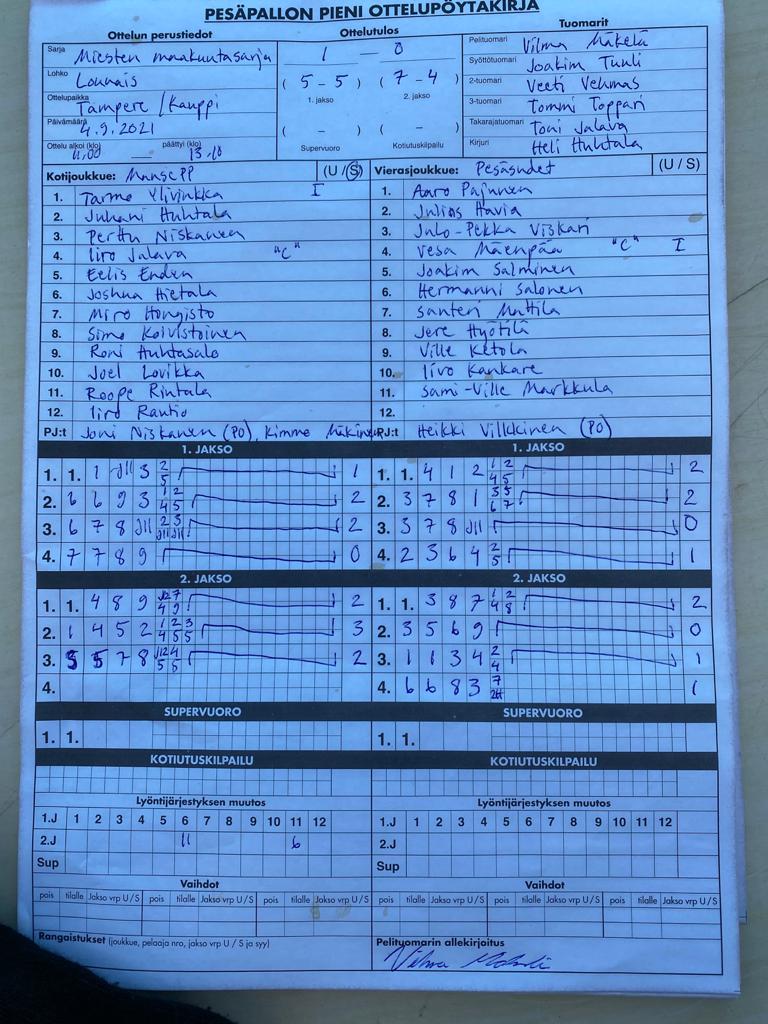 PESÄPALLON PIENI OTTELUPÖYTÄKIRJA
Ottelun perustiedot Ottelutulos Tuomarit
Sarja Miesten maakuntasarja 1 – 0 Pelituomari Vilma Mäkelä
Lohko Lounais (5 – 5) (7 – 4) Syöttötuomari Joakim Tuuli
1. jakso 2. jakso 2-tuomari Veeti Vehmas
Ottelupaikka Tampere / Kauppi 3-tuomari Tommi Toppari
Päivämäärä 4.9.2021 ( – ) ( – ) Takarajatuomari Toni Jalava
Ottelu alkoi (klo) 11.00 — päättyi (klo) 13.10 Supervuoro Kotiutuskilpailu Kirjuri Heli Huhtala
Kotijoukkue: ManSe PP (U / S) Vierasjoukkue: Pesäsudet (U / S)
1. Tarmo Ylivinkka I 1. Aaro Pajunen
2. Juhani Huhtala 2. Julius Havia
3. Perttu Niskanen 3. Juho-Pekka Viskari
4. Iiro Jalava "C" 4. Vesa Mäenpää "C" I
5. Eelis Enden 5. Joakim Salminen
6. Joshua Hietala 6. Hermanni Salonen
7. Miro Hongisto 7. Santeri Mattila
8. Simo Koivistoinen 8. Jere Hyötilä
9. Roni Huhtasalo 9. Ville Ketola
10. Joel Lovikka 10. Iivo Kankare
11. Roope Rintala 11. Sami-Ville Markkula
12. Iiro Rantio 12.
PJ:t Joni Niskanen (PO), Kimmo Mäkinen PJ:t Heikki Vilkkinen (PO)
1. JAKSO 1. JAKSO
1. 1. 1 J11 3 2 5 1 1. 1. 4 1 2 1 2 4 5 2
2. 6 6 9 3 1 2 4 5 2 2. 3 7 8 1 3 5 6 7 2
3. 6 7 8 J11 2 3 J11 J11 2 3. 3 7 8 J11 0
4. 7 7 8 9 0 4. 2 3 6 4 2 5 1
2. JAKSO 2. JAKSO
1. 1. 4 8 9 J12 7 4 9 2 1. 1. 3 8 7 1 2 4 8 2
2. 1 4 5 2 1 2 3 4 5 5 3 2. 3 5 6 9 0
3. 5 5 7 8 J12 4 5 5 2 3. 1 1 3 4 2 4 1
4. 4. 6 6 8 3 7 1
SUPERVUORO SUPERVUORO
1. 1. 1. 1.
KOTIUTUSKILPAILU KOTIUTUSKILPAILU
Lyöntijärjestyksen muutos Lyöntijärjestyksen muutos
1.J 1 2 3 4 5 6 7 8 9 10 11 12 1.J 1 2 3 4 5 6 7 8 9 10 11 12
2.J 11 6 2.J
Sup Sup
Vaihdot Vaihdot
pois tilalle Jakso vrp U/S pois tilalle Jakso vrp U/S pois tilalle Jakso vrp U/S pois tilalle Jakso vrp U/S pois tilalle Jakso vrp U/S pois tilalle Jakso vrp U/S
Rangaistukset (joukkue, pelaaja nro, jakso vrp U / S ja syy) Pelituomarin allekirjoitus
Vilma